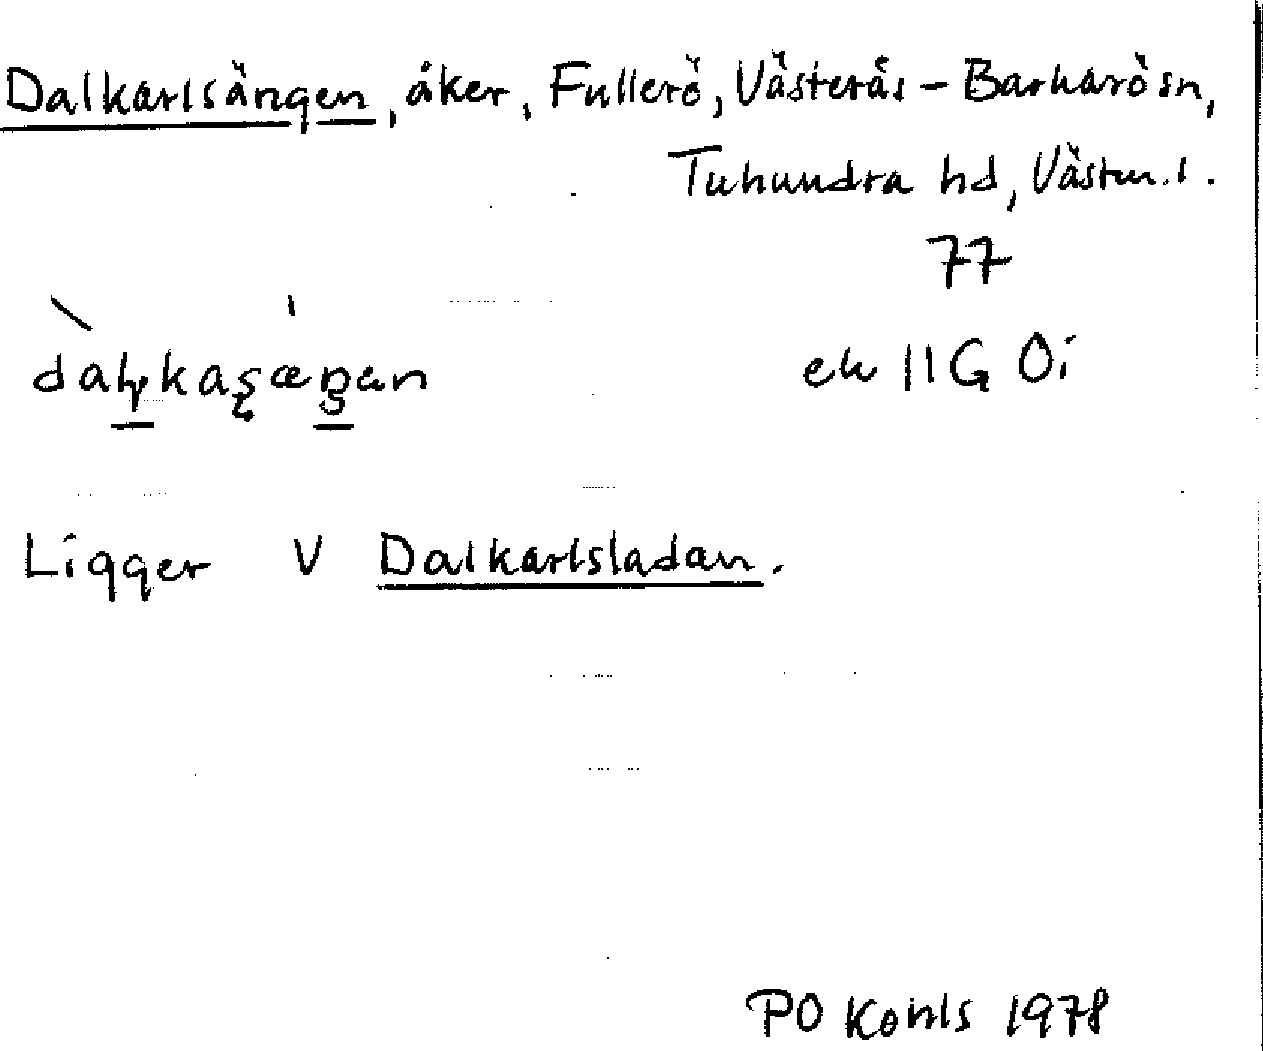 Dalkarlsängen, åker, Fullerö, Västerås-Barkarö sn,
Tuhundra hd, Västm. l.
77
ek 11G 0i
Ligger V Dalkarlsladan.
PO Kohls 1978